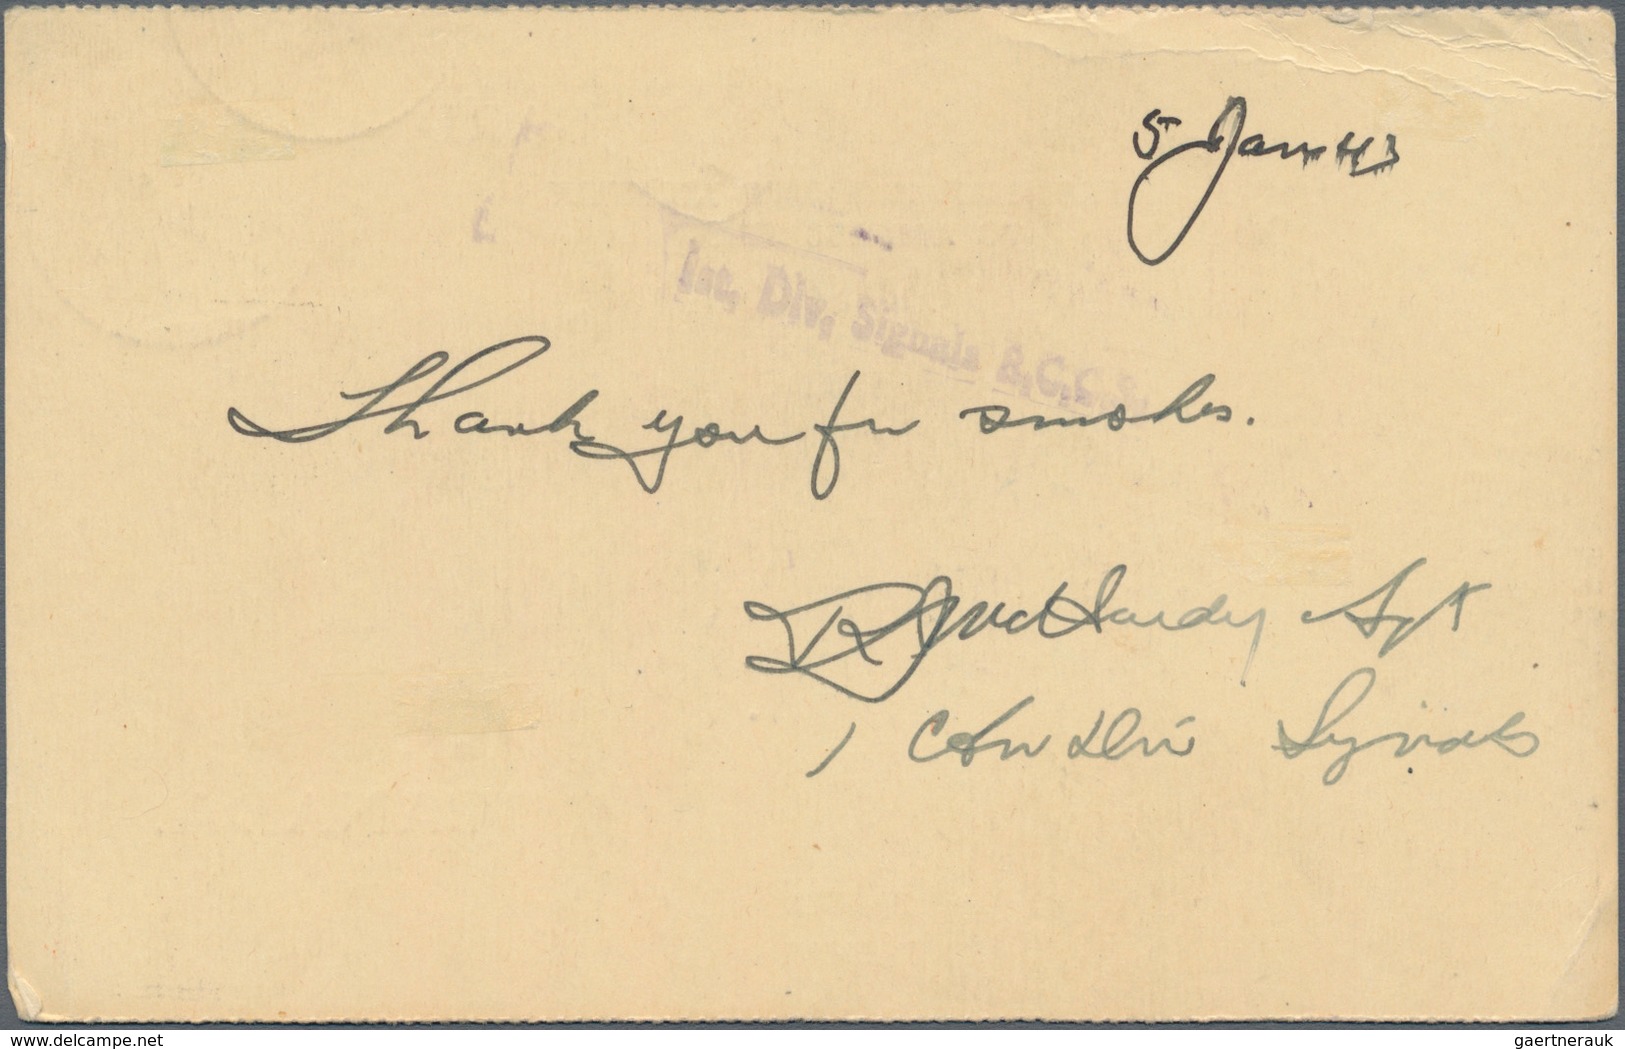 5 Jan 43
1st, Div, Signals R,C,C,S,
Thank you for smokes.
R J McHardy Sgt
1 Cdn Div Signals
www.delcampe.net
gaertnerauk